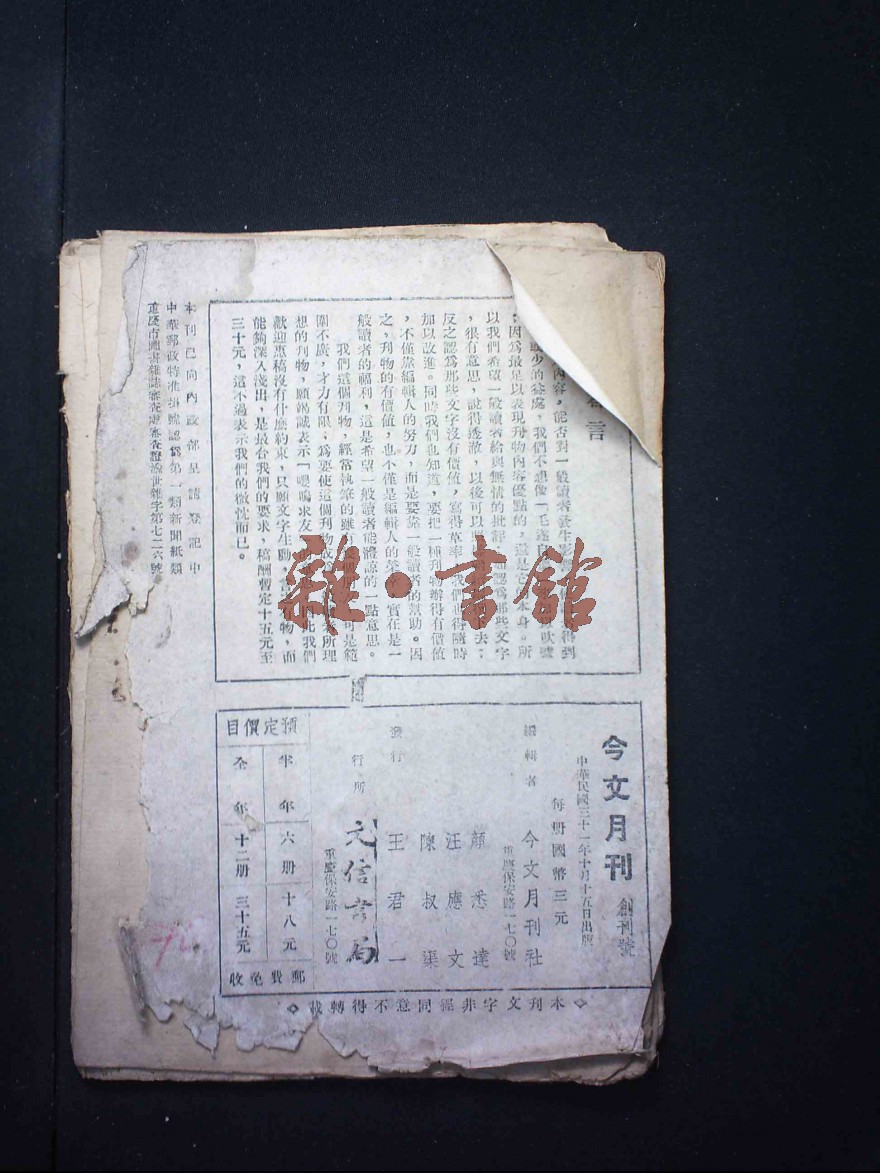 言
內容，能否對一般讀者發生影
最少的益處，我們不想像「毛遂
：因爲最足以表現刊物內容優點的，還是它本身。所
以我們希望一般讀者給與無情的批評
認爲那些文字
，很有意思，說得透澈，以後可以
去；
反之認爲那些文字沒有價値，寫得草率
我們也得隨時
加以改進。同時我們也知道，要把一種刊物辦得有價値
，不僅靠編輯人的努力，而是要靠一般讀者的幫助。因
之，刊物的有價値，也不僅是編輯人的榮
實在是一
般讀者的福利，這是希望一般讀者能體諒的一點意思。
我們這個刊物，經常執筆的雖有
可是範
圍不廣，才力有限，爲要使這個刊物成
所理
想的刊物，願竭誠表示「嚶鳴求友」
因此我們
歡迎惠稿沒有什麽約束，只願文字生動，言
物，而
能夠深入淺出，是最合我們的要求，稿酬暫定十五元至
三十元，這不過表示我們的微忱而已。
本刊已向內政部呈請登記中
中華郵政特准掛號認爲第一類新聞紙類
重慶市圖書雜誌審查處審查證渝世雜字第七二六號
雜·書館
今文月刊 創刊號
中華民國三十一年十月十五日出版
每册國幣三元
編輯者 今文月刊社
重慶保安路一七〇號
顏悉達
汪應文
陳叔渠
發行 王君一
行所 文信書局
重慶保安路一七〇號
預定價目
半年 六册 十八元
全年 十二册 三十五元
郵費免收
◇本刊文字非經同意不得轉載◇